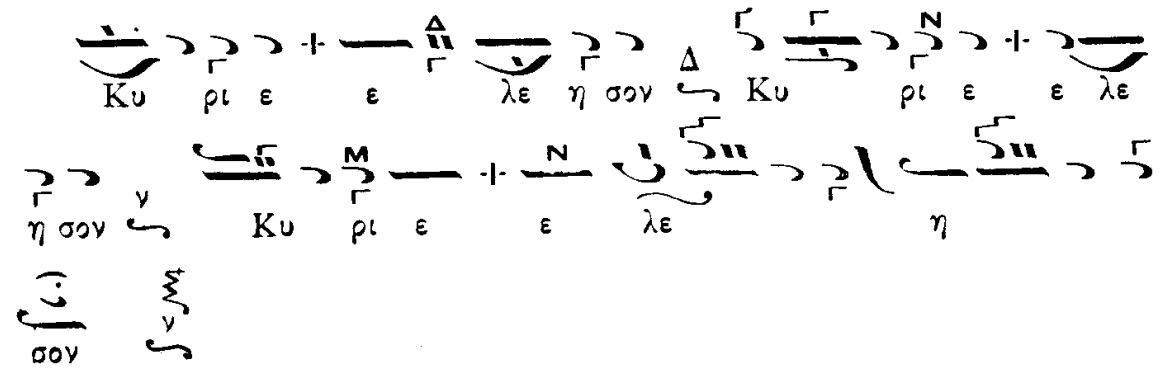 Κυ ρι ε ε λε η σον Κυ ρι ε ε λε
η σον Κυ ρι ε ε λε η
σον